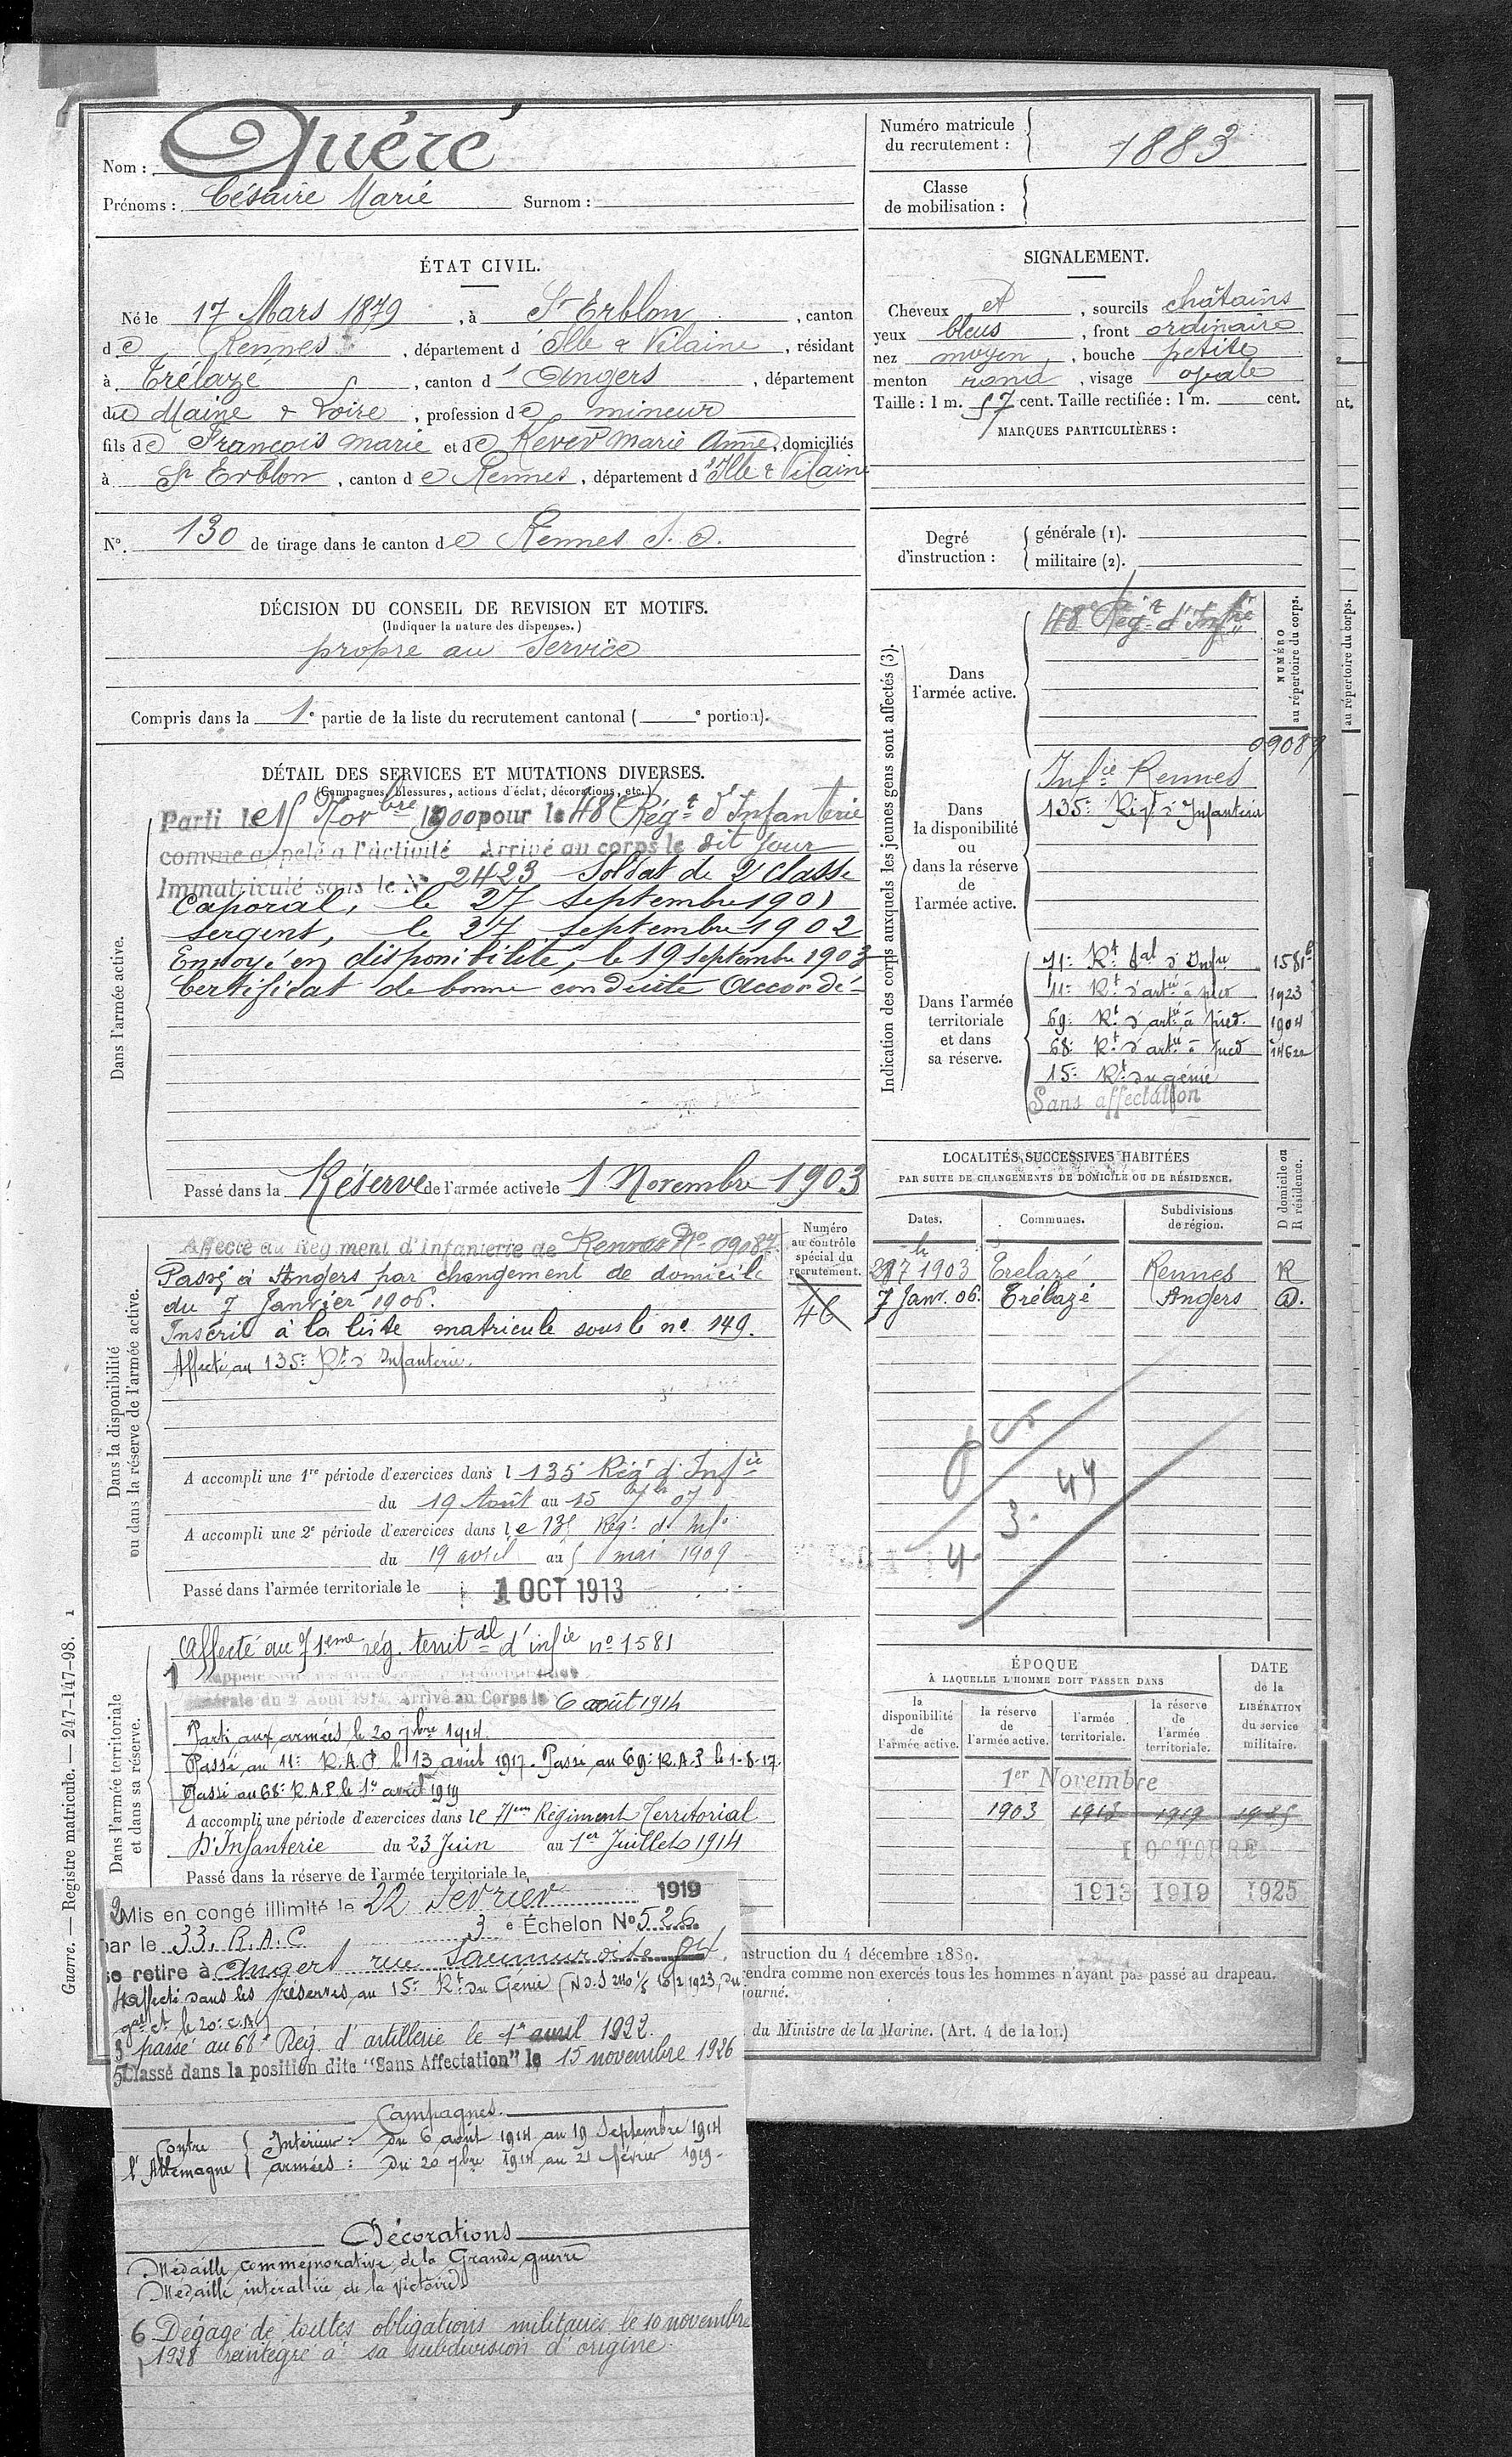 Nom : Quéré
Prénoms : Césaire Marie Surnom :
Numéro matricule du recrutement : 1883
Classe de mobilisation :
ÉTAT CIVIL.
Né le 17 Mars 1879, à St Erblon, canton
de Rennes, département d'Ille & Vilaine, résidant
à Trélaze, canton d'Angers, département
du Maine & Loire, profession de mineur
fils de François Marie et de Kever Marie Anne, domiciliés
à St Erblon, canton de Rennes, département d'Ille & Vilaine
N°. 130 de tirage dans le canton de Rennes S. O.
SIGNALEMENT.
Cheveux et, sourcils châtains
yeux bleus, front ordinaire
nez moyen, bouche petite
menton rond, visage ovale
Taille : 1 m. 57 cent. Taille rectifiée : 1 m. cent.
MARQUES PARTICULIÈRES :
Degré d'instruction :
générale (1).
militaire (2).
DÉCISION DU CONSEIL DE REVISION ET MOTIFS.
(Indiquer la nature des dispenses.)
propre au Service
Compris dans la 1e partie de la liste du recrutement cantonal ( e portion).
DÉTAIL DES SERVICES ET MUTATIONS DIVERSES.
(Campagnes, blessures, actions d'éclat, décorations, etc.)
Dans l'armée active.
Parti le 15 Novbre 1900 pour le 48 Régt d'Infanterie
comme appelé à l'activité Arrivé au corps le dit jour
Immatriculé sous le No 2423 Soldat de 2e classe
Caporal, le 27 septembre 1901
Sergent, le 27 septembre 1902
Envoyé en disponibilité, le 19 septembre 1903
Certificat de bonne conduite Accordé
Passé dans la Réserve de l'armée active le 1 Novembre 1903
Indication des corps auxquels les jeunes gens sont affectés (3).
Dans l'armée active.
48e Régt d'Infie
NUMÉRO au répertoire du corps.
09087
Dans la disponibilité ou dans la réserve de l'armée active.
Infie Rennes
135e Rgt d'Infanterie
Dans l'armée territoriale et dans sa réserve.
71e Rt tal d'Infie 1581
11e Rt d'artie à pied 1923
69e Rt d'artie à pied. 1904
68e Rt d'artie à pied
15e Rt du génie
Sans affectation
LOCALITÉS SUCCESSIVES HABITÉES
PAR SUITE DE CHANGEMENTS DE DOMICILE OU DE RÉSIDENCE.
Dates. Communes. Subdivisions de région. D domicile ou R résidence.
1903 Trelazé Rennes R
7 Janv. 06. Trélazé Angers D.
Dans la disponibilité ou dans la réserve de l'armée active.
Numéro au contrôle spécial du recrutement.
46
Affecté au Régiment d'Infanterie de Rennes No 09087
Passé à Angers par changement de domicile
du 7 Janvier 1906.
Inscrit à la liste matricule sous le no 149.
Affecté au 135e Rt d'Infanterie.
A accompli une 1re période d'exercices dans l 135 Régt d'Infie
du 19 Août au 15 7bre 07
A accompli une 2e période d'exercices dans le 135 Régt d'Infie
du 19 avril au 5 mai 1909
Passé dans l'armée territoriale le 1 OCT 1913
Dans l'armée territoriale et dans sa réserve.
Affecté au 71eme rég. territdl d'infie no 1581
générale du 2 Août 1914. Arrivé au Corps le 6 août 1914
Parti aux armées le 20 7bre 1914.
Passé au 11e R.A.P. le 13 avril 1917. Passé au 69e R.A.P le 1-8-17.
Passé au 68e R.A.P. le 1er avril 1919
A accompli une période d'exercices dans le 71em Régiment Territorial
D'Infanterie du 23 Juin au 1er Juillet 1914
Passé dans la réserve de l'armée territoriale le
ÉPOQUE
À LAQUELLE L'HOMME DOIT PASSER DANS
la disponibilité de l'armée active.
la réserve de l'armée active.
l'armée territoriale.
la réserve de l'armée territoriale.
DATE de la LIBÉRATION du service militaire.
1er Novembre
1903 1913 1919 1925
1 OCTOBRE
1913 1919 1925
2 Mis en congé illimité le 22 Fevrier 1919
par le 33. R.A.C. 3e Échelon No 526
se retire à Angers rue Saumuroise 94.
4 Affecté dans les réserves au 15e Rt du Génie
3 passé au 68e Rég. d'artillerie le 1er avril 1922.
5 Classé dans la position dite "Sans Affectation" le 15 novembre 1926
Campagnes.
Contre l'Allemagne
Intérieur : du 6 août 1914 au 19 Septembre 1914
armées : du 20 7bre 1914 au 21 février 1919-
Décorations
Médaille commémorative de la Grande guerre
Médaille interalliée de la Victoire
6 Dégagé de toutes obligations militaires le 10 novembre
1928 réintégré à sa subdivision d'origine.
nstruction du 4 décembre 1889.
endra comme non exercés tous les hommes n'ayant pas passé au drapeau.
journé.
du Ministre de la Marine. (Art. 4 de la loi.)
Guerre. — Registre matricule. — 247-147-98. 1
au répertoire du corps.